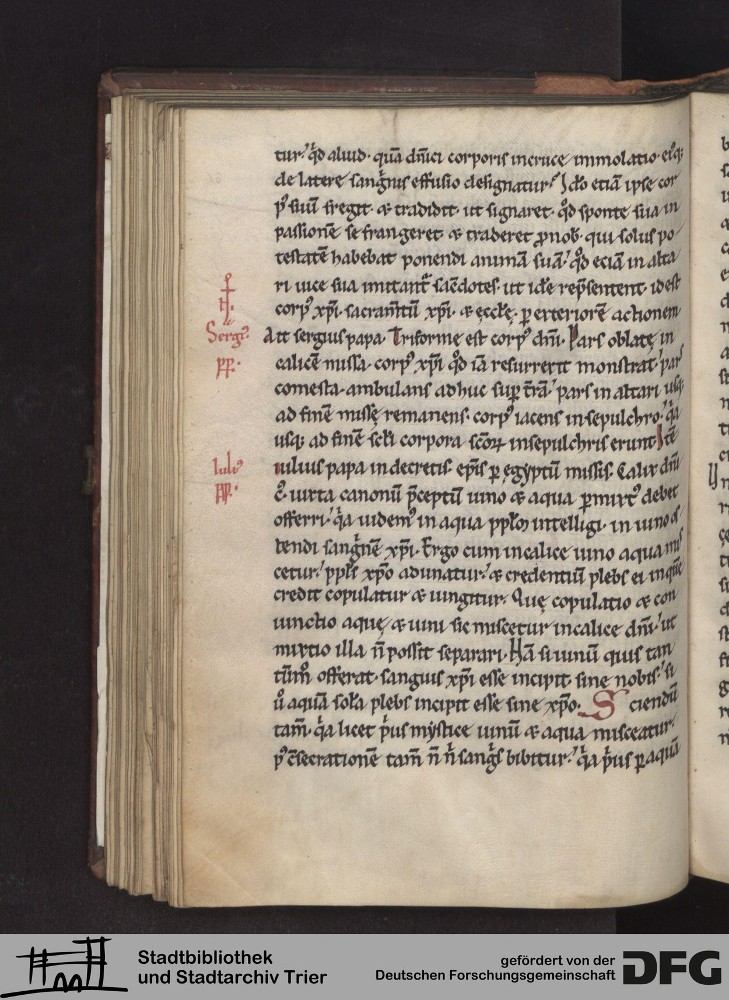 tur. qd aliud. quā dn̄ici corporis in cruce immolatio. eiꝰq;
de latere sanguinis effusio designatur. Ido etiā ipse cor
pꝰ suū fregit. & tradidit. ut signaret. qd sponte sua in
passionē se frangeret. & traderet ꝓ nob. qui solus po
testatē habebat ponendi animā suā. qd eciā in alta
ri uice sua imitant̄ sac̄dotes. ut id̄e rep̄sentent. id est
corpꝰ xp̄i. sacram̄tū xp̄i. & ęcclę. ꝑ exteriorē actionem
Sergiꝰ pp.
Ait sergius papa. Triforme est corpꝰ dn̄i. Pars oblatę in
calicē missa. corpꝰ xp̄i qd iā resurrexit monstrat. pars
comesta. ambulans adhuc suꝑ t̄rā. pars in altari usq;
ad finē missę remanens. corpꝰ iacens in sepulchro. qa
usq; ad finē sc̄li corpora sc̄oꝝ in sepulchris erunt. Itē
Iuliꝰ PP.
iulius papa in decretis. ep̄is ꝑ egyptū missis. Calix dn̄i
ē. iuxta canonū p̄ceptū uino & aqua ꝑmixtꝰ debet
offerri. qa uidemꝰ in aqua pp̄lm intelligi. in uino os
tendi sanguinē xp̄i. Ergo cum in calice uino aqua mis
cetur. pp̄ls xp̄o adunatur. & credentiū plebs ei in quē
credit copulatur & iungitur. Quę copulatio & con
iunctio aquę & uini sic miscetur in calice dn̄i. ut
mixtio illa n̄ possit separari. Nā si uinū quis tan
tūm offerat. sanguis xp̄i esse incipit sine nobis. si
ů aquā sola plebs incipit esse sine xp̄o. Sciendū
tam̄. qa licet pꝰus mystice uinū & aqua misceatur.
p̓ ꝯsecrationē tam̄ n̄ n̓ sanguis bibitur. qa pꝰus ꝑ aquā
Stadtbibliothek
und Stadtarchiv Trier
gefördert von der
Deutschen Forschungsgemeinschaft
DFG